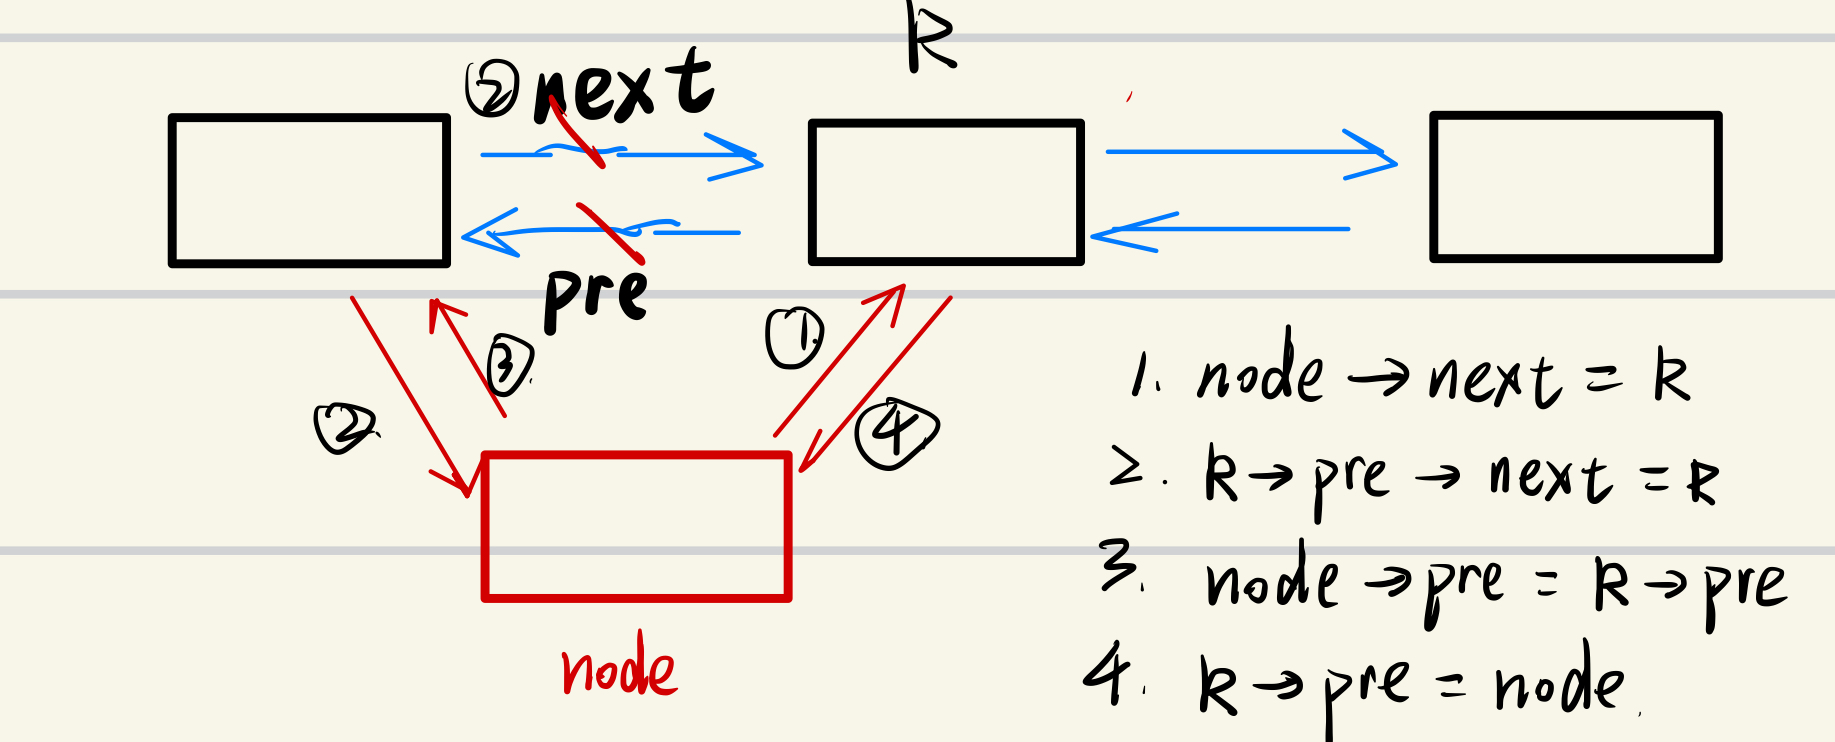 R
② next
pre
①
③
②
④
node
1. node → next = R
2. R → pre → next = R
3. node → pre = R → pre
4. R → pre = node